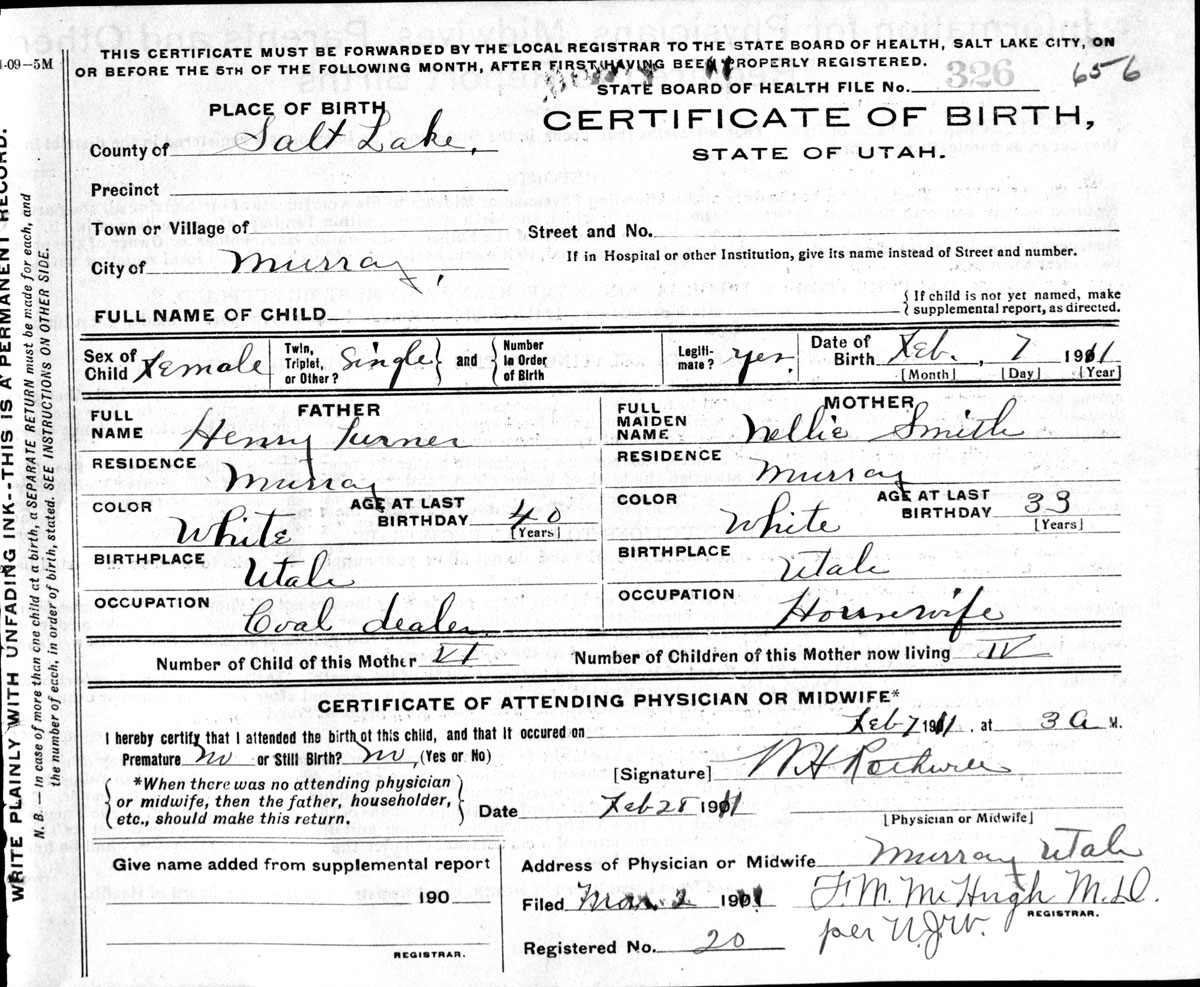 THIS CERTIFICATE MUST BE FORWARDED BY THE LOCAL REGISTRAR TO THE STATE BOARD OF HEALTH, SALT LAKE CITY, ON
OR BEFORE THE 5TH OF THE FOLLOWING MONTH, AFTER FIRST HAVING BEEN PROPERLY REGISTERED.
-09-5M
STATE BOARD OF HEALTH FILE No. 326 656
PLACE OF BIRTH
CERTIFICATE OF BIRTH,
STATE OF UTAH.
County of Salt Lake,
Precinct
Town or Village of
Street and No.
City of Murray,
If in Hospital or other Institution, give its name instead of Street and number.
FULL NAME OF CHILD
{ If child is not yet named, make
supplemental report, as directed.
Sex of Child Female
Twin, Triplet, or Other? Single } and { Number in Order of Birth
Legiti-mate? yes.
Date of Birth Feb., 7 1911
[Month] [Day] [Year]
FATHER
FULL NAME Henry Turner
RESIDENCE Murray
COLOR White AGE AT LAST BIRTHDAY 40 [Years]
BIRTHPLACE Utah
OCCUPATION Coal dealer.
MOTHER
FULL MAIDEN NAME Nellie Smith
RESIDENCE Murray
COLOR White AGE AT LAST BIRTHDAY 33 [Years]
BIRTHPLACE Utah
OCCUPATION Housewife
Number of Child of this Mother VI
Number of Children of this Mother now living IV
CERTIFICATE OF ATTENDING PHYSICIAN OR MIDWIFE*
I hereby certify that I attended the birth of this child, and that it occured on Feb 7 1911, at 3 A M.
Premature No or Still Birth? No, (Yes or No)
*When there was no attending physician
or midwife, then the father, householder,
etc., should make this return.
[Signature] W H Rothwell
[Physician or Midwife]
Date Feb 28 1911
Give name added from supplemental report
190
REGISTRAR.
Address of Physician or Midwife Murray Utah
Filed Mar. 2 1911 F. M. McHugh M.D.
REGISTRAR.
per N.J.W.
Registered No. 20
WRITE PLAINLY WITH UNFADING INK--THIS IS A PERMANENT RECORD.
N. B. — In case of more than one child at a birth, a SEPARATE RETURN must be made for each, and
the number of each, in order of birth, stated. SEE INSTRUCTIONS ON OTHER SIDE.